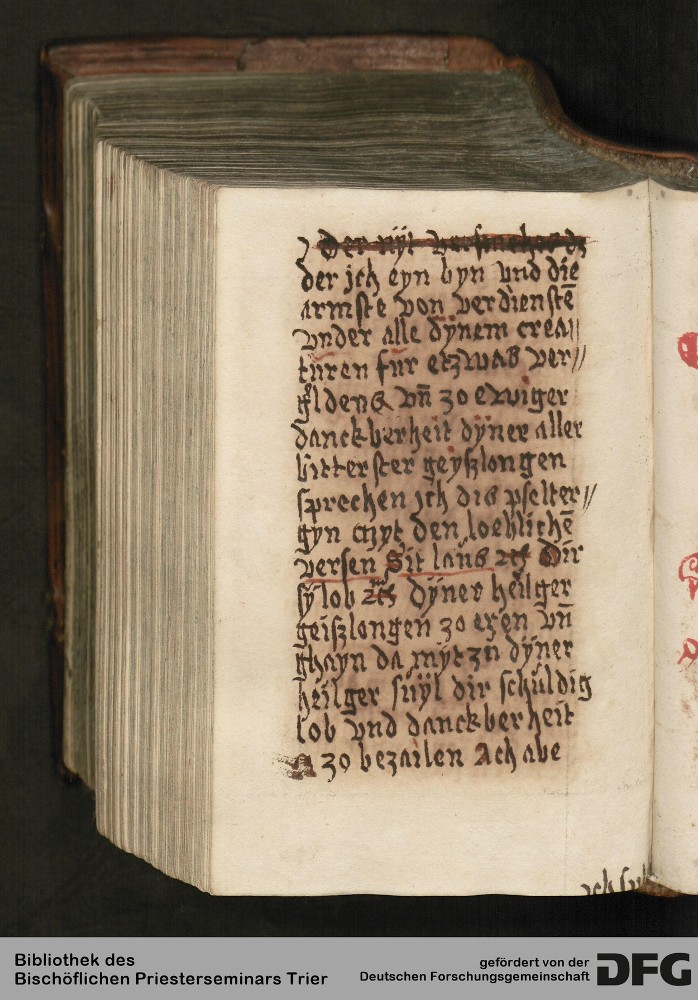 der jch eyn byn vnd die
armste von verdienstē
vnder alle dÿnem crea//
türen für etzwas ver//
vñ zo ewiger
danckberheit dÿner aller
bitterster geyszlongen
sprechen jch dis pselter//
gyn mÿt den loeblichē
versen Sit laus Dir
sÿ lob dÿner heilger
geiszlongen zo eren vñ
da mÿt zu dÿner
heilger süÿl dir schuldig
lob vnd danckberheit
zo bezailen Ach abe
Bibliothek des
Bischöflichen Priesterseminars Trier
gefördert von der
Deutschen Forschungsgemeinschaft
DFG